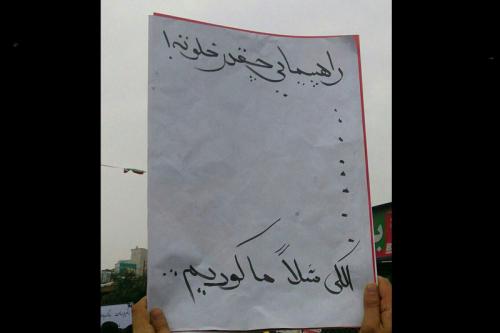 راهپیمایی چقدر خلوته!
.......
الکی مثلاً ما کوریم...